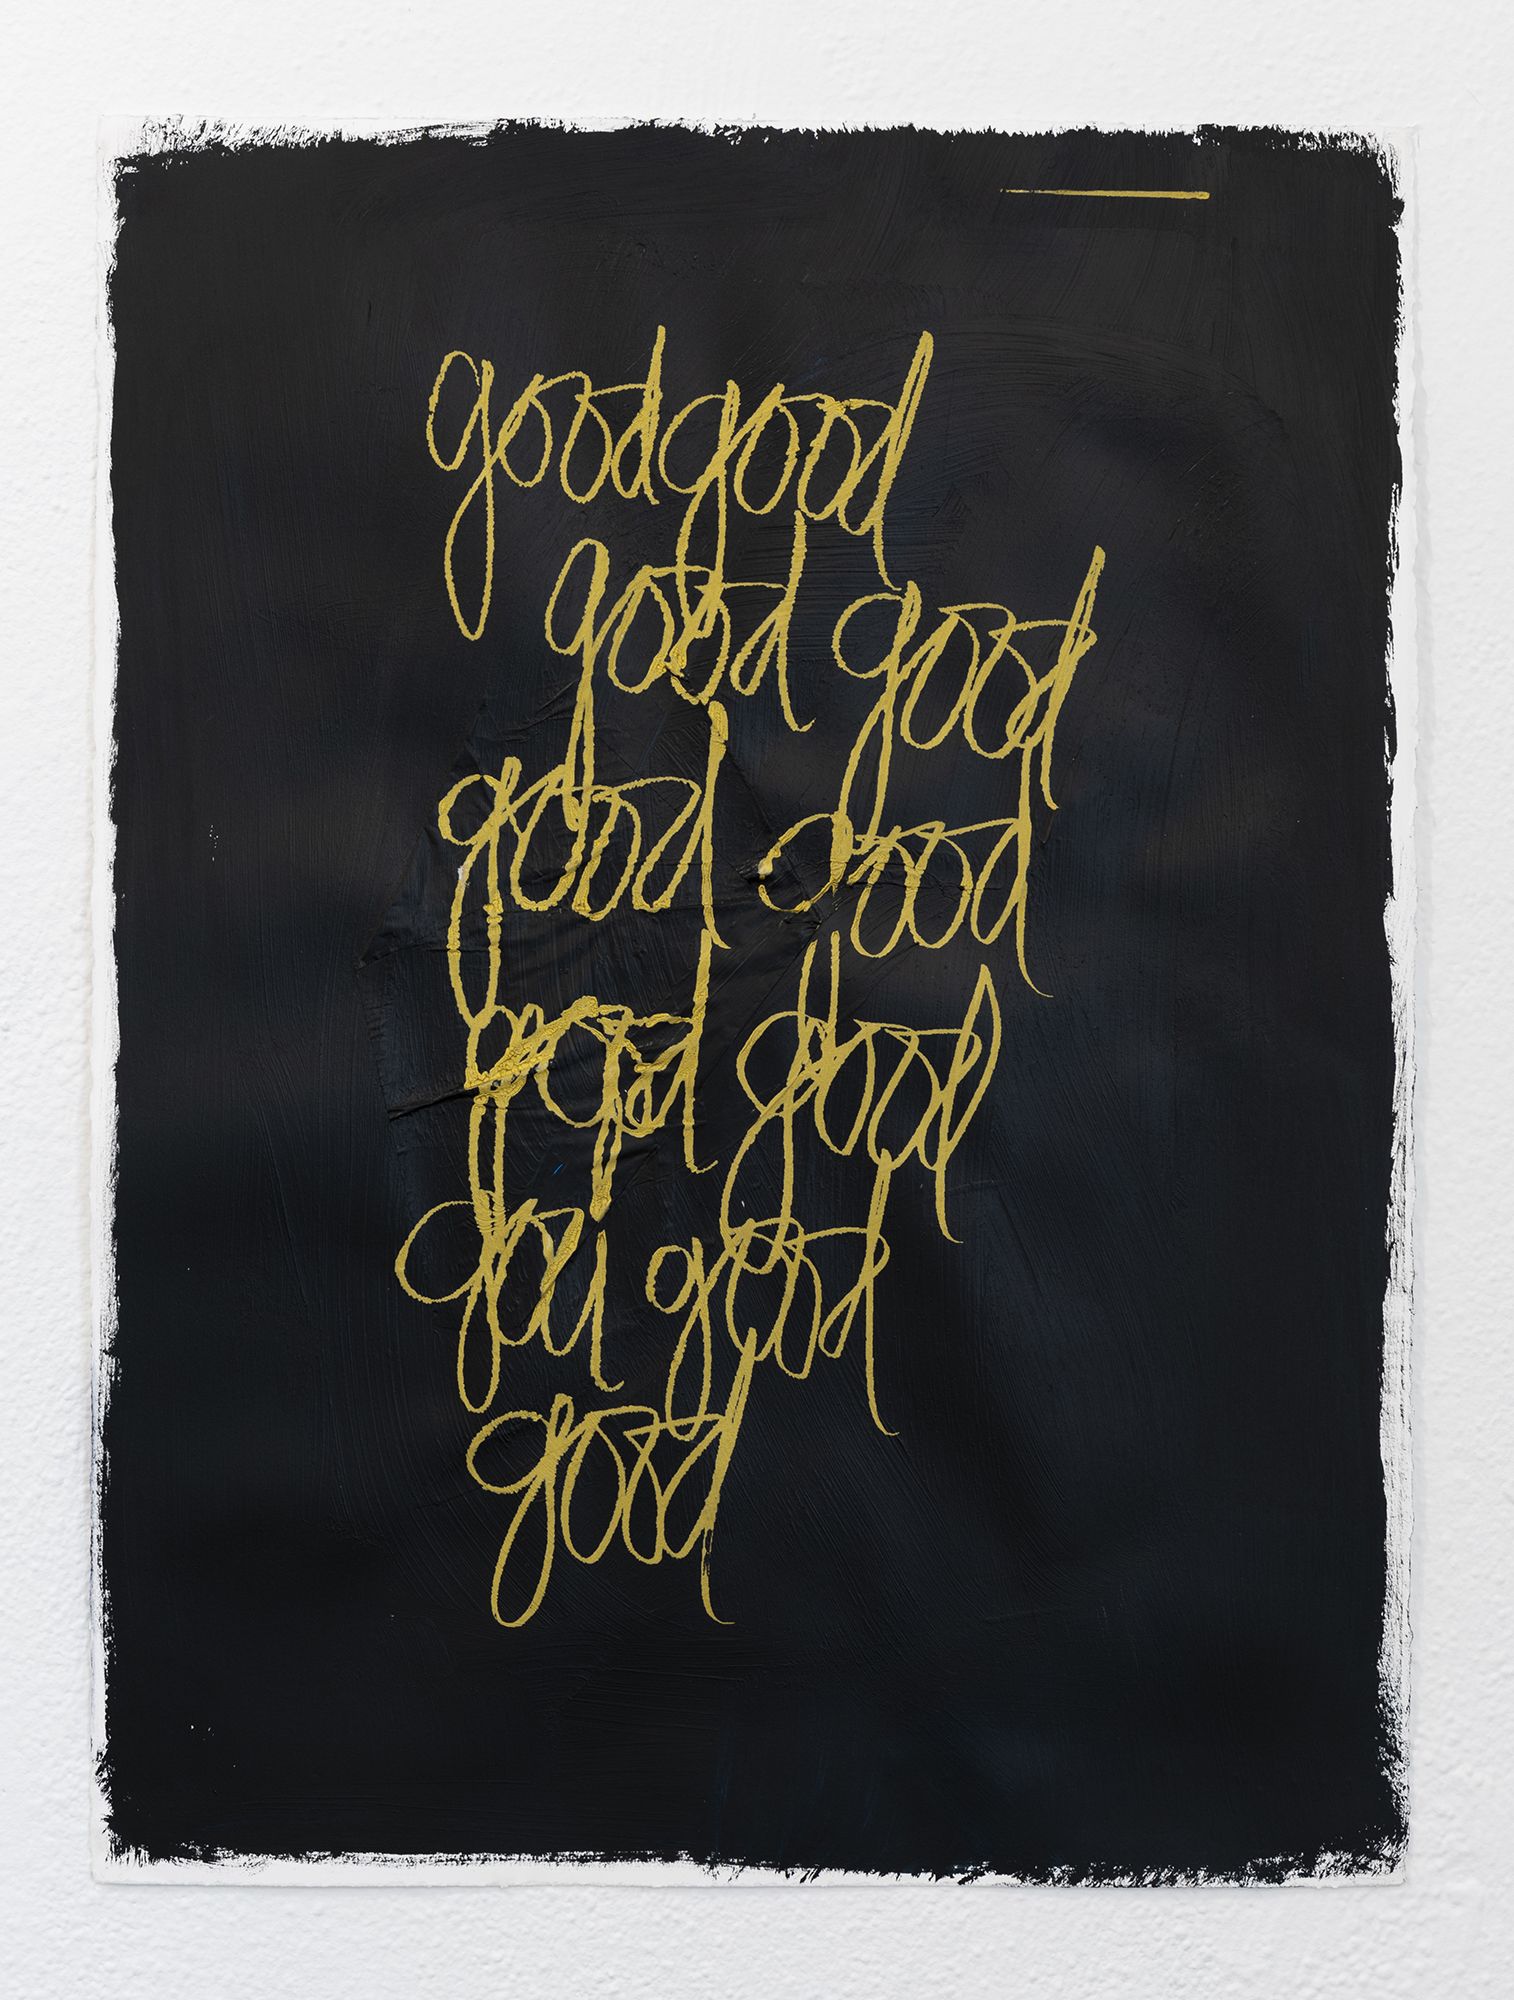 goodgood
good good
good good
good good
good good
good